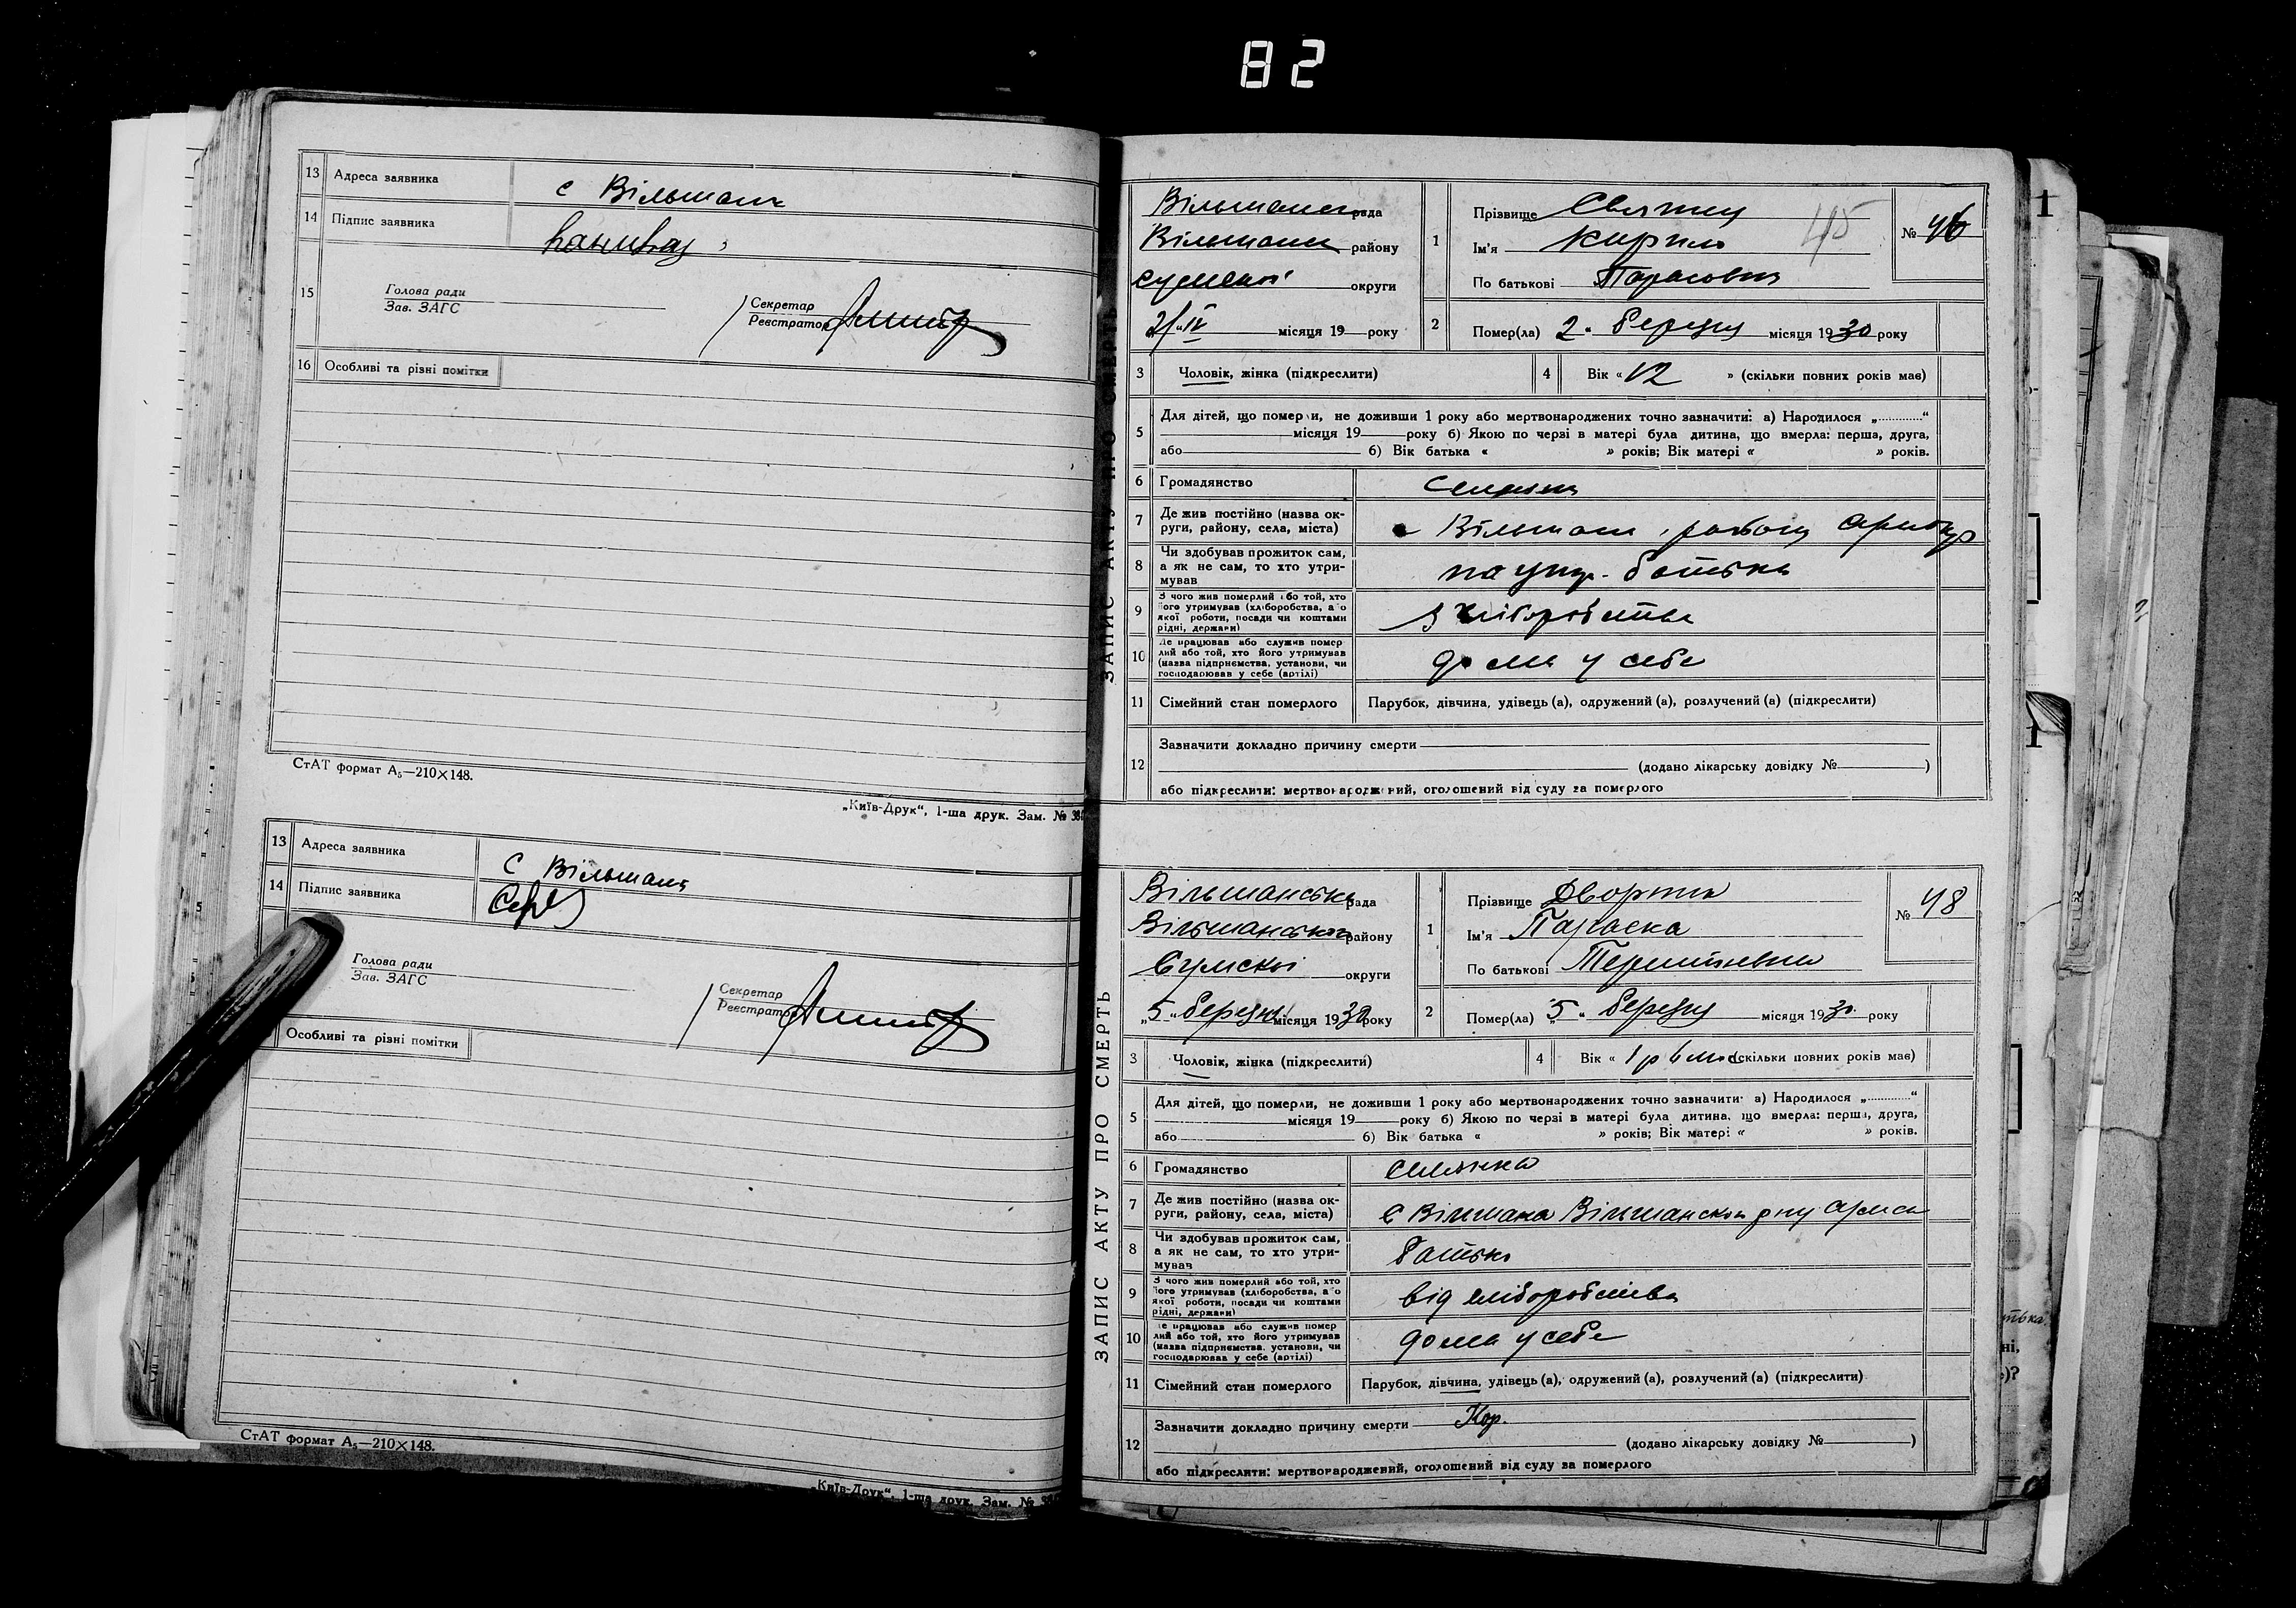 82
13 Адреса заявника с Вільшана
14 Підпис заявника
15 Голова ради
Зав. ЗАГС
Секретар
Реєстратор
16 Особливі та різні помітки
СтАТ формат А₅—210×148.
„Київ-Друк“, 1-ша друк. Зам. №
13 Адреса заявника С Вільшана
14 Підпис заявника
Голова ради
Зав. ЗАГС
Секретар
Реєстратор
Особливі та різні помітки
СтАТ формат А₅—210×148.
„Київ-Друк“, 1-ша друк. Зам. №
ЗАПИС АКТУ ПРО СМЕРТЬ
рада
району
округи
місяця 19 року
1 Прізвище
Ім'я Кирило
По батькові Тарасович
45
№ 46
2 Помер(ла) 2 „ березня місяця 1930 року
3 Чоловік, жінка (підкреслити)
4 Вік « » (скільки повних років має)
5 Для дітей, що померли, не доживши 1 року або мертвонароджених точно зазначити: а) Народилося „ “
місяця 19 року б) Якою по черзі в матері була дитина, що вмерла: перша, друга,
або б) Вік батька « » років; Вік матері « » років.
6 Громадянство селянин
7 Де жив постійно (назва ок-
руги, району, села, міста) Вільшана
8 Чи здобував прожиток сам,
а як не сам, то хто утри-
мував на утр. батька
9 З чого жив померлий або той, хто
його утримував (хліборобства, або
якої роботи, посади чи коштами
рідні, держави) з хліборобства
10 Де працював або служив помер
лий або той, хто його утримував
(назва підприємства, установи, чи
господарював у себе (артілі) дома у себе
11 Сімейний стан померлого Парубок, дівчина, удівець (а), одружений (а), розлучений (а) (підкреслити)
12 Зазначити докладно причину смерти
(додано лікарську довідку № )
або підкреслити: мертвонароджений, оголошений від суду за померлого
ЗАПИС АКТУ ПРО СМЕРТЬ
Вільшанська рада
Вільшанського району
Сумської округи
„5 „ березня місяця 1930 року
1 Прізвище
Ім'я Параска
По батькові Терентіевна
№ 48
2 Помер(ла) „5 „ березня місяця 1930. року
3 Чоловік, жінка (підкреслити)
4 Вік « 1 р 6 міс (скільки повних років має)
5 Для дітей, що померли, не доживши 1 року або мертвонароджених точно зазначити: а) Народилося „ “
місяця 19 року б) Якою по черзі в матері була дитина, що вмерла: перша, друга,
або б) Вік батька « » років; Вік матері « » років.
6 Громадянство селянка
7 Де жив постійно (назва ок-
руги, району, села, міста) с Вільшана Вільшанськ р ну
8 Чи здобував прожиток сам,
а як не сам, то хто утри-
мував батько
9 З чого жив померлий або той, хто
його утримував (хліборобства, або
якої роботи, посади чи коштами
рідні, держави) від хліборобства
10 Де працював або служив помер
лий або той, хто його утримував
(назва підприємства, установи, чи
господарював у себе (артілі) дома у себе
11 Сімейний стан померлого Парубок, дівчина, удівець (а), одружений (а), розлучений (а) (підкреслити)
12 Зазначити докладно причину смерти Кор.
(додано лікарську довідку № )
або підкреслити: мертвонароджений, оголошений від суду за померлого